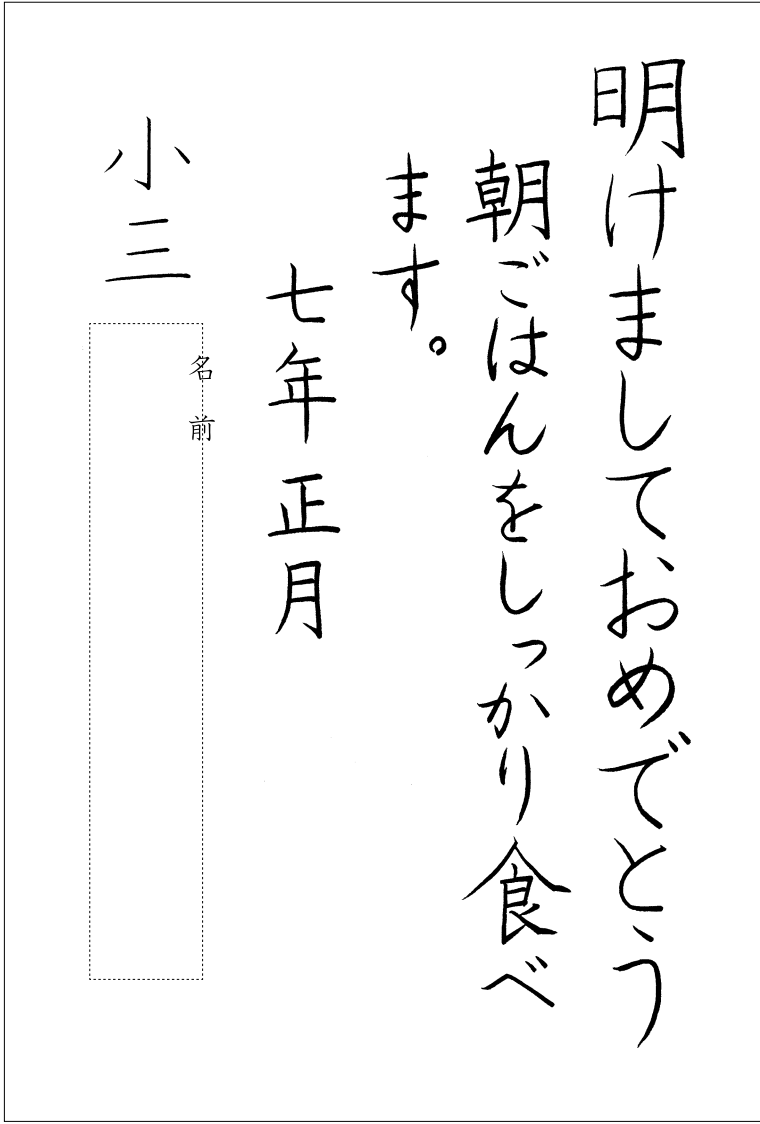 明けましておめでとう
朝ごはんをしっかり食べ
ます。
七年正月
小三
名前